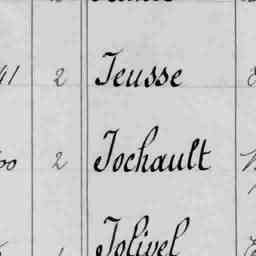 41 2 Jeusse
00 2 Jochault
Jolivel